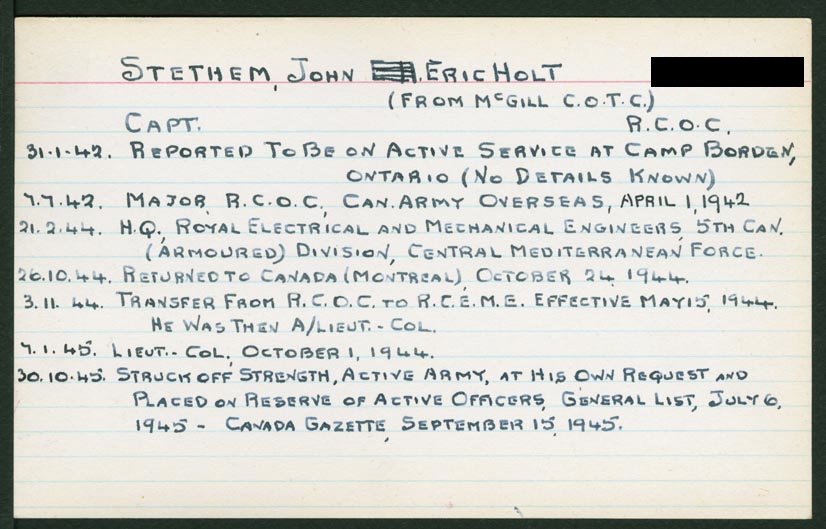 STETHEM, JOHN ERIC HOLT
(FROM McGILL C.O.T.C.)
CAPT. R.C.O.C.
31.1.42. REPORTED TO BE ON ACTIVE SERVICE AT CAMP BORDEN,
ONTARIO (NO DETAILS KNOWN)
7.7.42. MAJOR, R.C.O.C., CAN. ARMY OVERSEAS, APRIL 1, 1942
21.2.44. H.Q., ROYAL ELECTRICAL AND MECHANICAL ENGINEERS, 5TH CAN.
(ARMOURED) DIVISION, CENTRAL MEDITERRANEAN FORCE.
26.10.44. RETURNED TO CANADA (MONTREAL), OCTOBER 24, 1944.
3.11.44. TRANSFER FROM R.C.O.C. TO R.C.E.M.E. EFFECTIVE MAY 15, 1944.
HE WAS THEN A/LIEUT.-COL.
7.1.45. LIEUT.-COL., OCTOBER 1, 1944.
30.10.45. STRUCK OFF STRENGTH, ACTIVE ARMY, AT HIS OWN REQUEST AND
PLACED ON RESERVE OF ACTIVE OFFICERS, GENERAL LIST, JULY 6,
1945 - CANADA GAZETTE, SEPTEMBER 15, 1945.